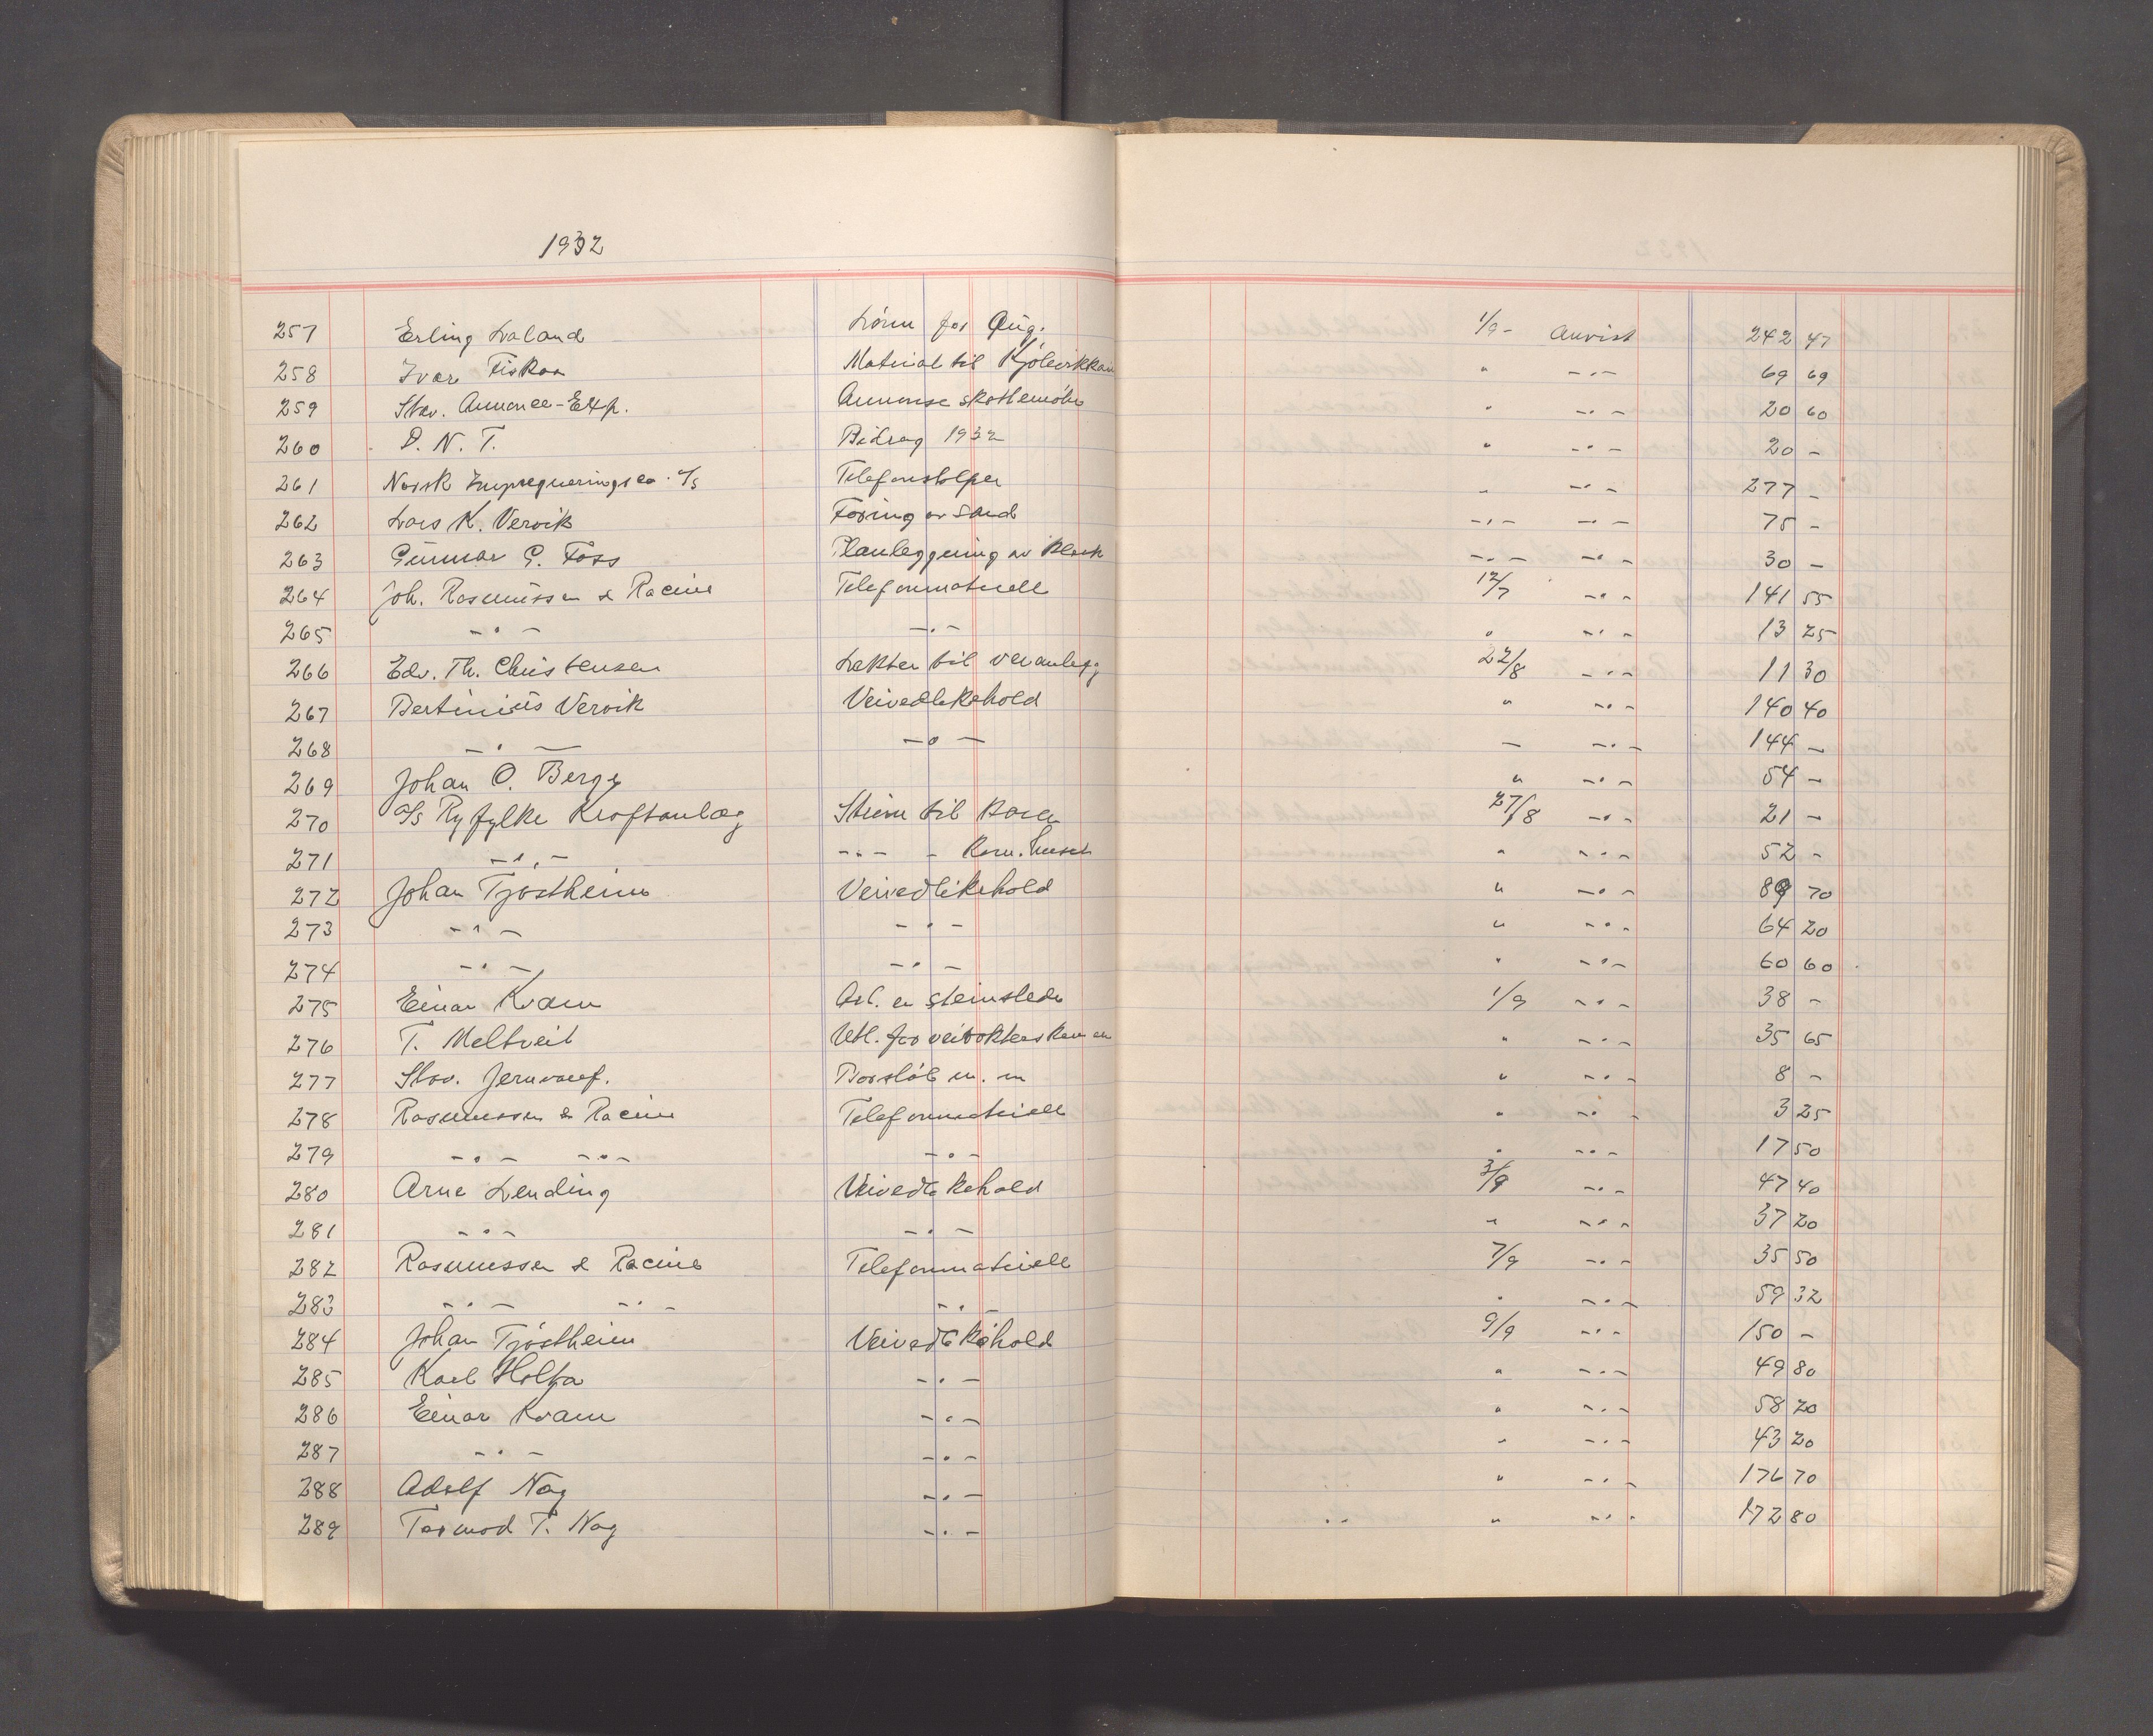 1932
257 Erling Laland Lönn for Aug. 1/9- Anvist 242 47
258 Ivar Fiskaa Material til " -"- 69 69
259 Stav. Annonce-Exp. Annonse skattemöte " -"- 20 60
260 D. N. T. Bidrag 1932 " -"- 20 -
261 Norsk Impregneringsco. A/S Telefonstolper " -"- 277 -
262 Lars K. Vervik Föring av sand -"- -"- 75 -
263 Gunnar G. Foss Planleggning av -"- -"- 30 -
264 Joh. Rasmussen & Racine Telefonmateriell 12/7 -"- 141 55
265 -"- -"- " -"- 13 25
266 Edv. Th. Christensen Lekter til veianlegg 22/8 -"- 11 30
267 Bertinius Vervik Veivedlikehold " -"- 140 40
268 -"- -"- - -"- 144 -
269 Johan O. Berge " -"- 54 -
270 A/S Ryfylke Kraftanlæg Ström til 27/8 -"- 21 -
271 -"- -"- - Kom. huset " -"- 52 -
272 Johan Tjöstheim Veivedlikehold " -"- 89 70
273 -"- -"- " -"- 64 20
274 -"- -"- " -"- 60 60
275 Einar Kvam Arb. en steinslede 1/9 -"- 38 -
276 T. Meltveit Utl. for " -"- 35 65
277 Stav. Jernvaref. Borstål m. m " -"- 8 -
278 Rasmussen & Racine Telefonmateriell " -"- 3 25
279 -"- -"- -"- " -"- 17 50
280 Arne Lending Veivedlikehold 3/9 -"- 47 40
281 -"- -"- " -"- 37 20
282 Rasmussen & Racine Telefonmateriell 7/9 -"- 35 50
283 -"- -"- -"- " -"- 59 32
284 Johan Tjöstheim Veivedlikehold 9/9 -"- 150 -
285 Karl Holta -"- " -"- 49 80
286 Einar Kvam -"- " -"- 58 20
287 -"- -"- " -"- 43 20
288 Adolf Nag -"- " -"- 176 70
289 Tormod T. Nag -"- " -"- 172 80